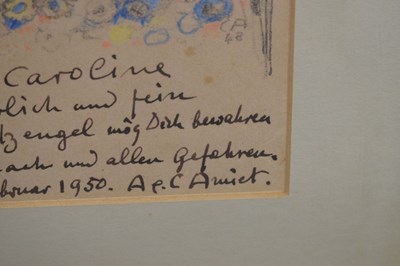 Caroline
rlich und fein
tzengel mög Dich bewahren
ach und allen Gefahren.
bruar 1950. A & C Amiet.